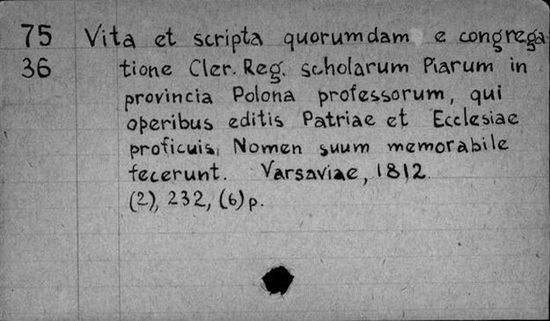 75 Vita et scripta quorumdam e congrega-
36 tione Cler. Reg. scholarum Piarum in
provincia Polona professorum, qui
operibus editis Patriae et Ecclesiae
proficuis, Nomen suum memorabile
fecerunt. Varsaviae, 1812.
(2), 232, (6) p.